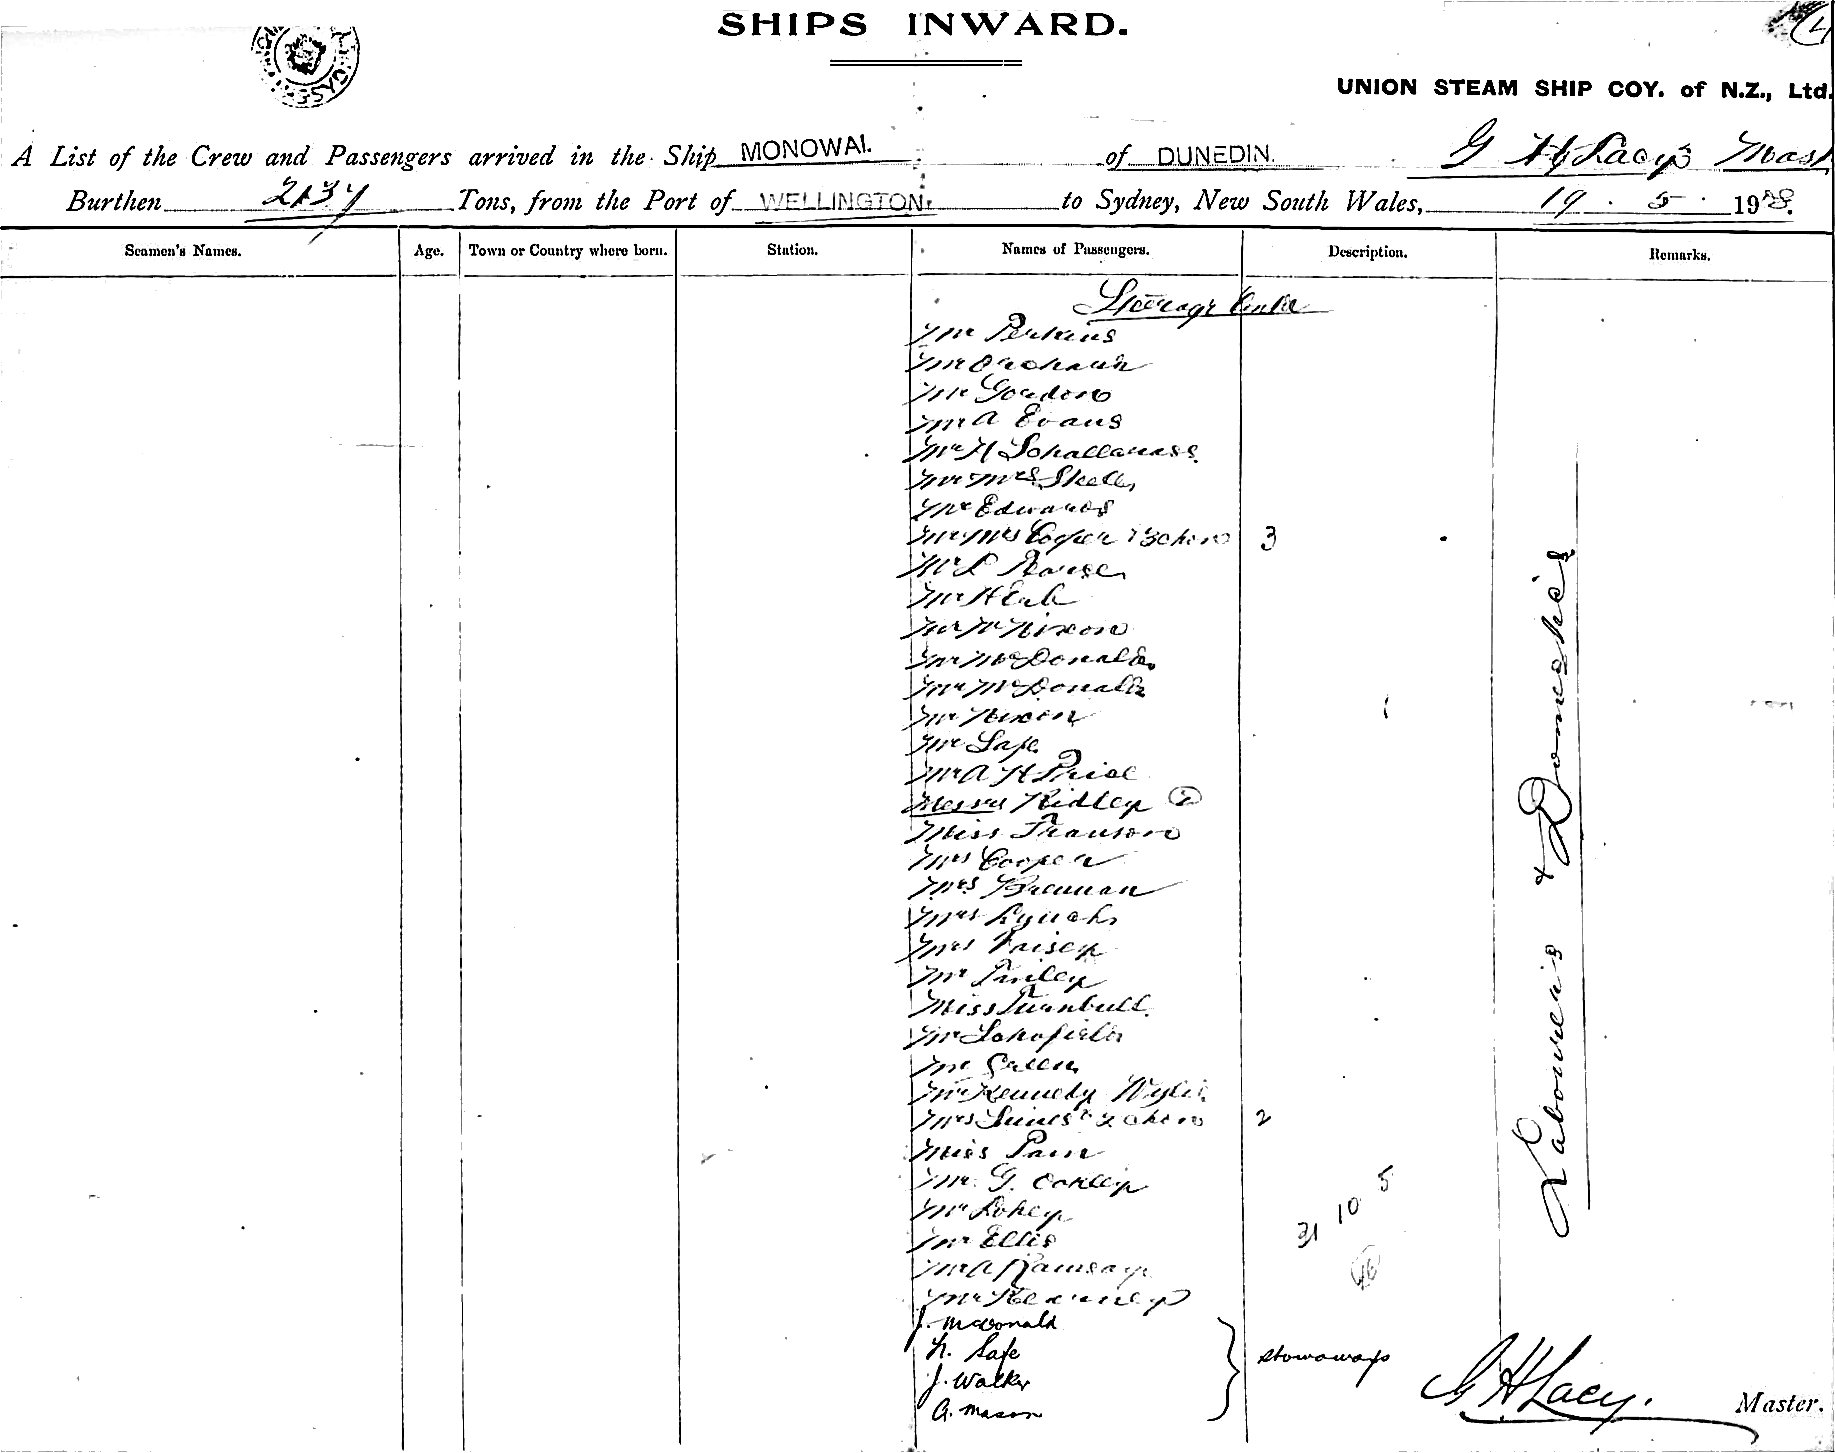 SHIPS INWARD.
UNION STEAM SHIP COY. of N.Z., Ltd.
A List of the Crew and Passengers arrived in the Ship MONOWAI. of DUNEDIN. G H Lacy Mast
Burthen 2137 Tons, from the Port of WELLINGTON. to Sydney, New South Wales, 19 . 5 . 19
Seamen's Names. Age. Town or Country where born. Station. Names of Passengers. Description. Remarks.
Steerage
Mr Perkins
Mr
Mr Gordon
Mr A Evans
Mr H
Mr Mrs
Mr Edwards
Mr Mrs Cooper 3 chirn 3
Mr
Mr
Mr Nixon
Mr McDonald
Mr McDonald
Mr Nixon
Mr Safe
Mr A H Price
Messrs Ridley 2
Miss
Mrs Cooper
Mrs Brennan
Mrs Lynch
Mrs
Mr
Miss Turnbull
Mr Schofield
Mr Green
Mr Kennedy Wylie
Mrs 2 chirn 2
Miss Pain
Mr. G. Oakley
Mr
Mr Ellis
Mr A Ramsay
Mr Kearney
J. McDonald
N. Safe
J. Walker
A. Mason
stowaways
31 10 5
46
Labourers & Domestics
G H Lacy. Master.